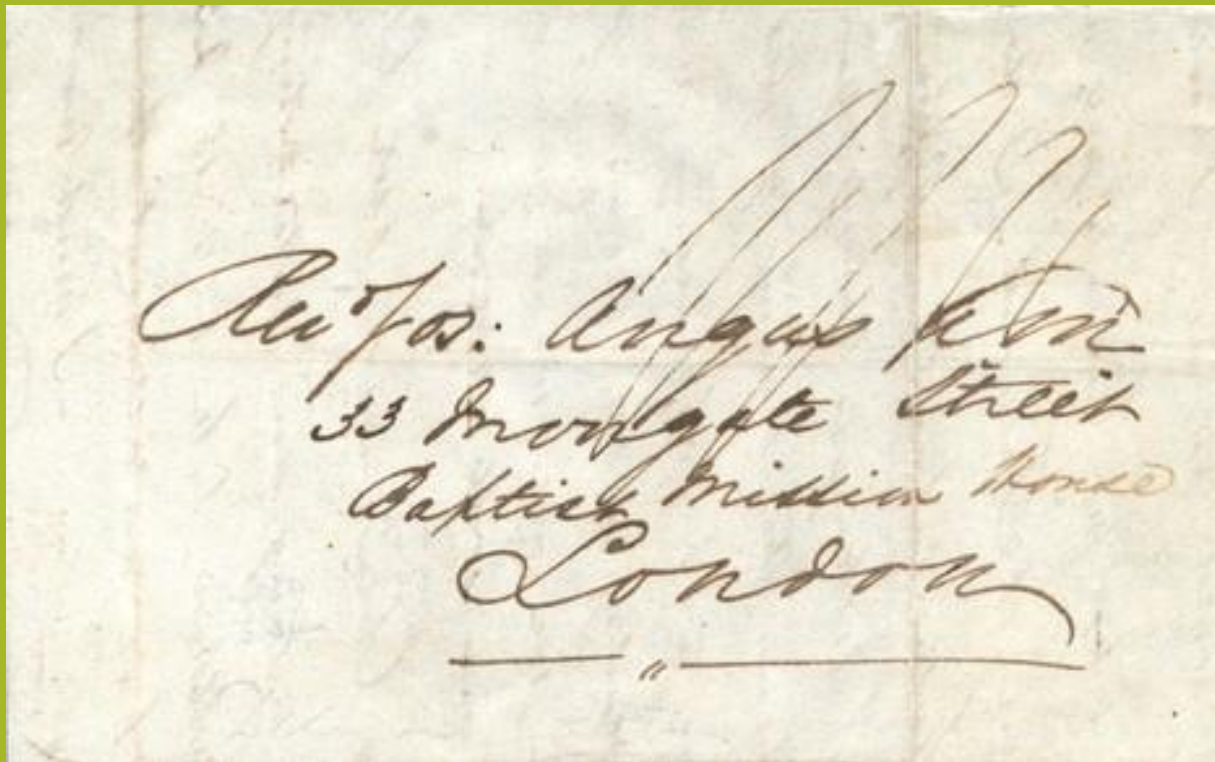 Revd Jos: Angus A M
33 Moorgate Street
Baptist Mission House
London